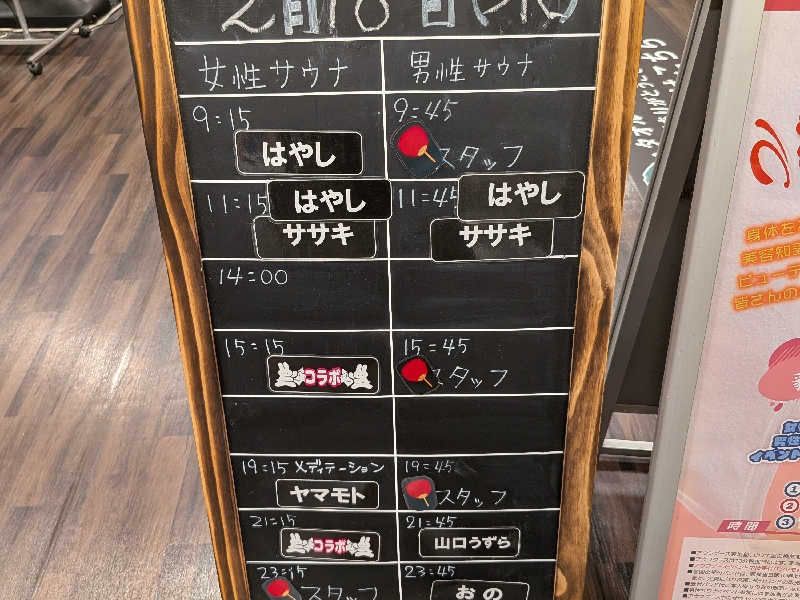 2月18日(水)
女性サウナ 男性サウナ
9:15 はやし
9:45 スタッフ
11:15 はやし ササキ
11:45 はやし ササキ
14:00
15:15 コラボ
15:45 スタッフ
19:15 メディテーション ヤマモト
19:45 スタッフ
21:15 コラボ
21:45 山口うずら
23:15 スタッフ
23:45 おの
身体を
美容知
ビューテ
皆さんの
イベント
①
②
③
時間